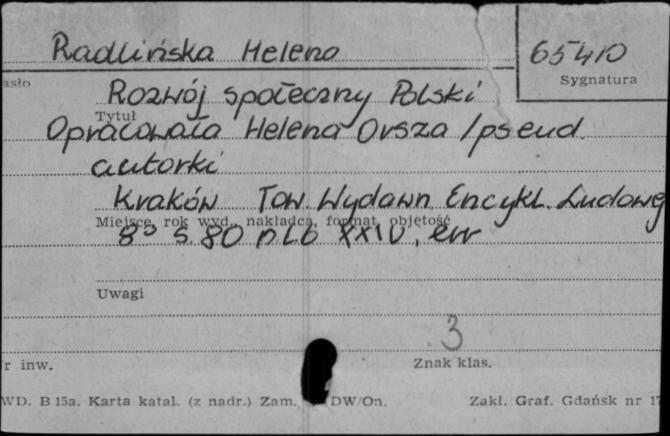 Radlińska Helena
65410
asło
Sygnatura
Rozwój społeczny Polski
Tytuł
Opracowała Helena Orsza /pseud.
autorki
Kraków Tow. Wydawn Encykl. Ludowej
Miejsce, rok wyd., nakładca, format, objętość
8° s. 80 nlb XXIV,
Uwagi
3
r inw.
Znak klas.
WD. B 15a. Karta katal. (z nadr.) Zam. DW/On.
Zakł. Graf. Gdańsk nr 1